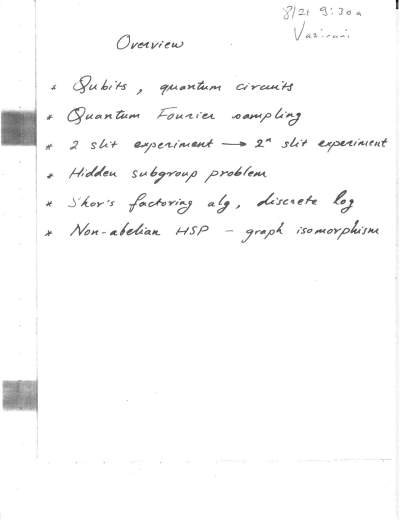 8/21 9:30a
Vazirani
Overview
* Qubits, quantum circuits
* Quantum Fourier sampling
* 2 slit experiment → 2ⁿ slit experiment
* Hidden subgroup problem
* Shor's factoring alg, discrete log
* Non-abelian HSP – graph isomorphism